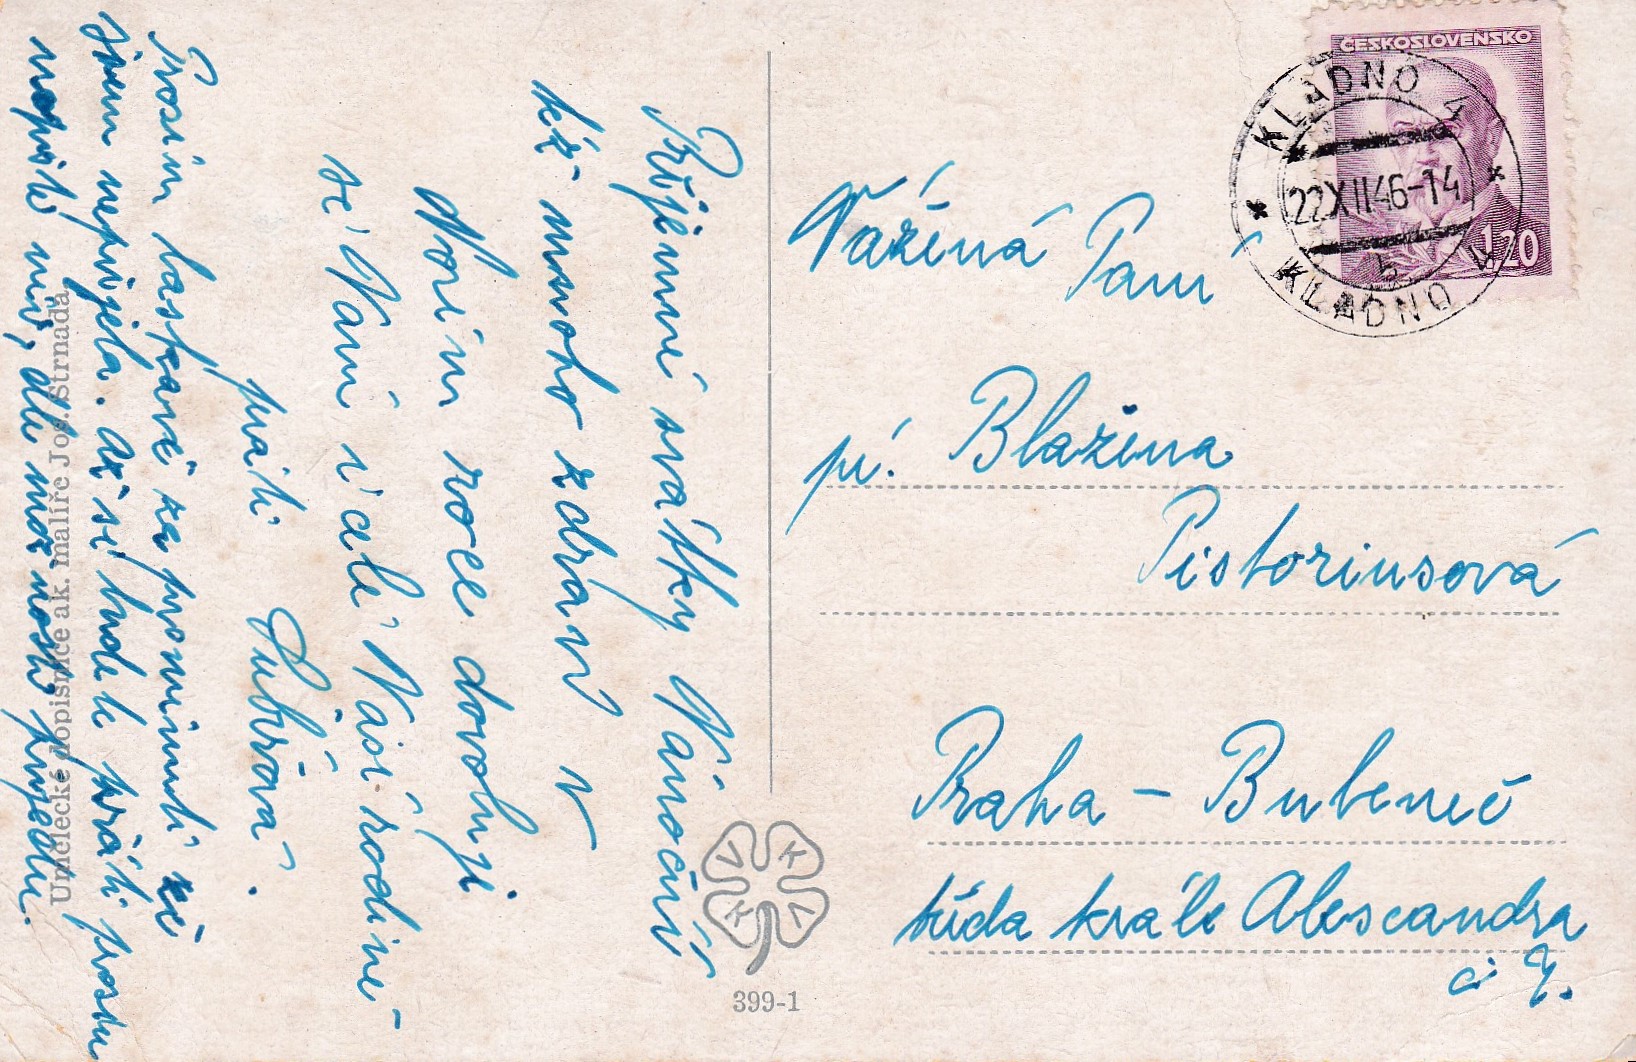 Příjemné svátky Vánoční
též mnoho zdraví v
Novém roce dovoluji
si Vám i celé Vaší rodině
přáti
Dubová.
Prosím laskavě za prominutí že
jsem nepřijela. Až se bude to práti prosím
napište mi, dle možnosti přijedu.
Umělecké dopisnice ak. malíře Jos. Strnada
ČESKOSLOVENSKO
1.20
KLADNO 4
22.XII.46-14
5
KLADNO 4
Vážená Paní
pí. Blažena
Pistoriusová
Praha - Bubeneč
třída krále Alexandra
č
V K V K
399-1